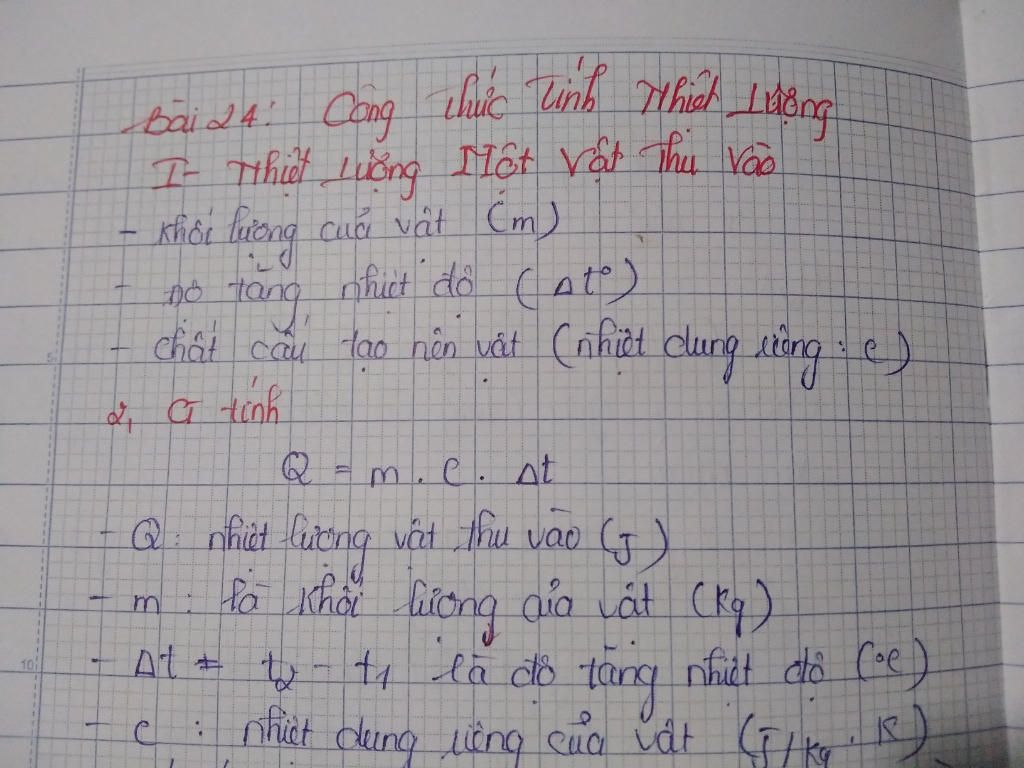 Bài 24: Công thức tính nhiệt lượng
I- Nhiệt lượng một vật thu vào
- khối lượng của vật (m)
- Độ tăng nhiệt độ (Δt°)
- chất cấu tạo nên vật (nhiệt dung riêng: c)
2, CT tính
Q = m . c . Δt
- Q: nhiệt lượng vật thu vào (J)
- m: là khối lượng của vật (kg)
- Δt = t₂ - t₁ là độ tăng nhiệt độ (°c)
- c : nhiệt dung riêng của vật (J/kg . K)